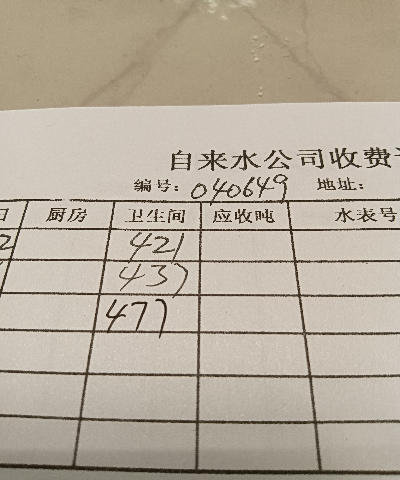 自来水公司收费
编号: 040649 地址:
日 厨房 卫生间 应收吨 水表号
2 421
437
477